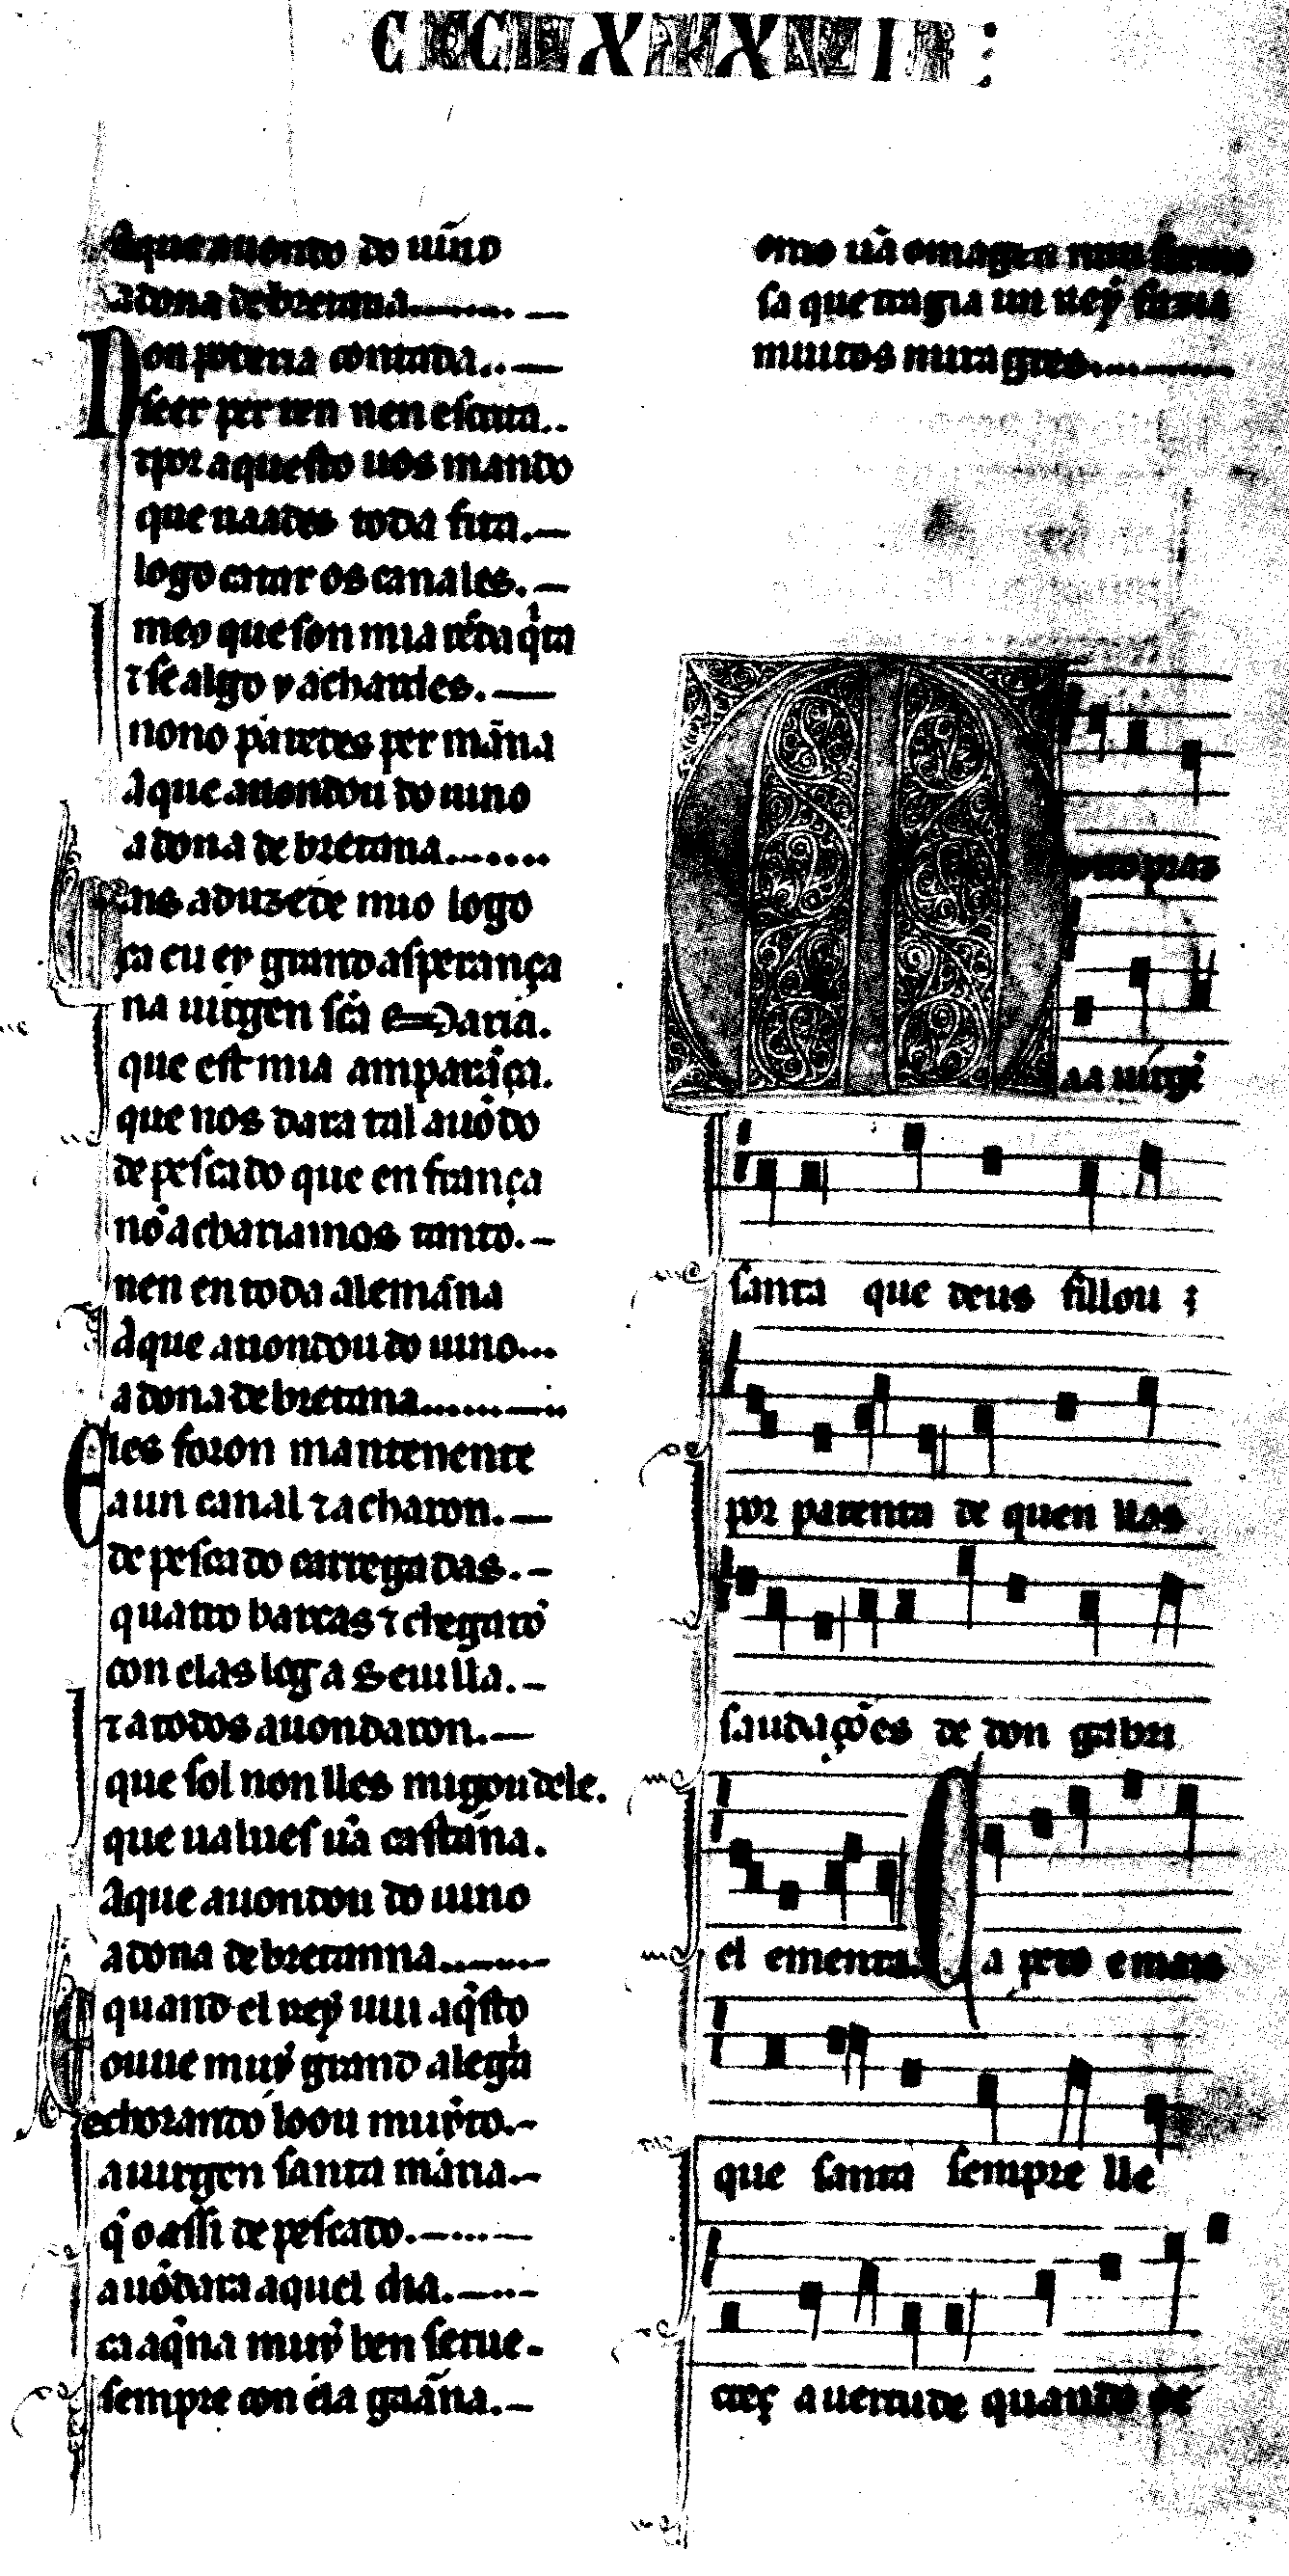 CCCLXXXVI :
A que auondo do uĩno
a dona de bretanna
Non poderia contada
seer per ren nen escrita
⁊ por aquesto uos mando
que uaades toda fita
logo catar os canales
meo que son mia rẽda q̇ta
⁊ se algo y achardes
nono paredes per mãna
A que auondou do uino
a dona de bretanna
Ens aduzede mio logo
ca eu ey grand asperança
na uirgen scã Maria.
que est mia amparãça.
que nos dara tal auõdo
de pescado que en frança
nõ achariamos tanto.
nen en toda alemãna
A que auondou do uino
a dona de bretanna
Eles foron mantenente
a un canal ⁊ acharon.
de pescado carregadas.
quatro barcas ⁊ chegarõ
con elas log a Seuilla.
⁊ a todos auondaron.
que sol non lles migou dele.
que ualues ũa castãna.
A que auondou do uino
a dona de bretanna
E quand el rey uiu aq̃sto
ouue muy grand alegria
e chorando loou muyto.
a uirgen santa maria.
q̃ o assi de pescado.
auõdara aquel dia.
ca aq̃na muy ben serue.
sempre con ela gaãna.
omo ũa omagen
sa que tragia un rey fazia
muitos miragres
Muito praz
aa uirgẽ
santa que deus fillou :
por parenta de quen lles
saudações de don gabri
el ementa. Ca preto e mais
que santa sempre lle
creç a uertude quando oe